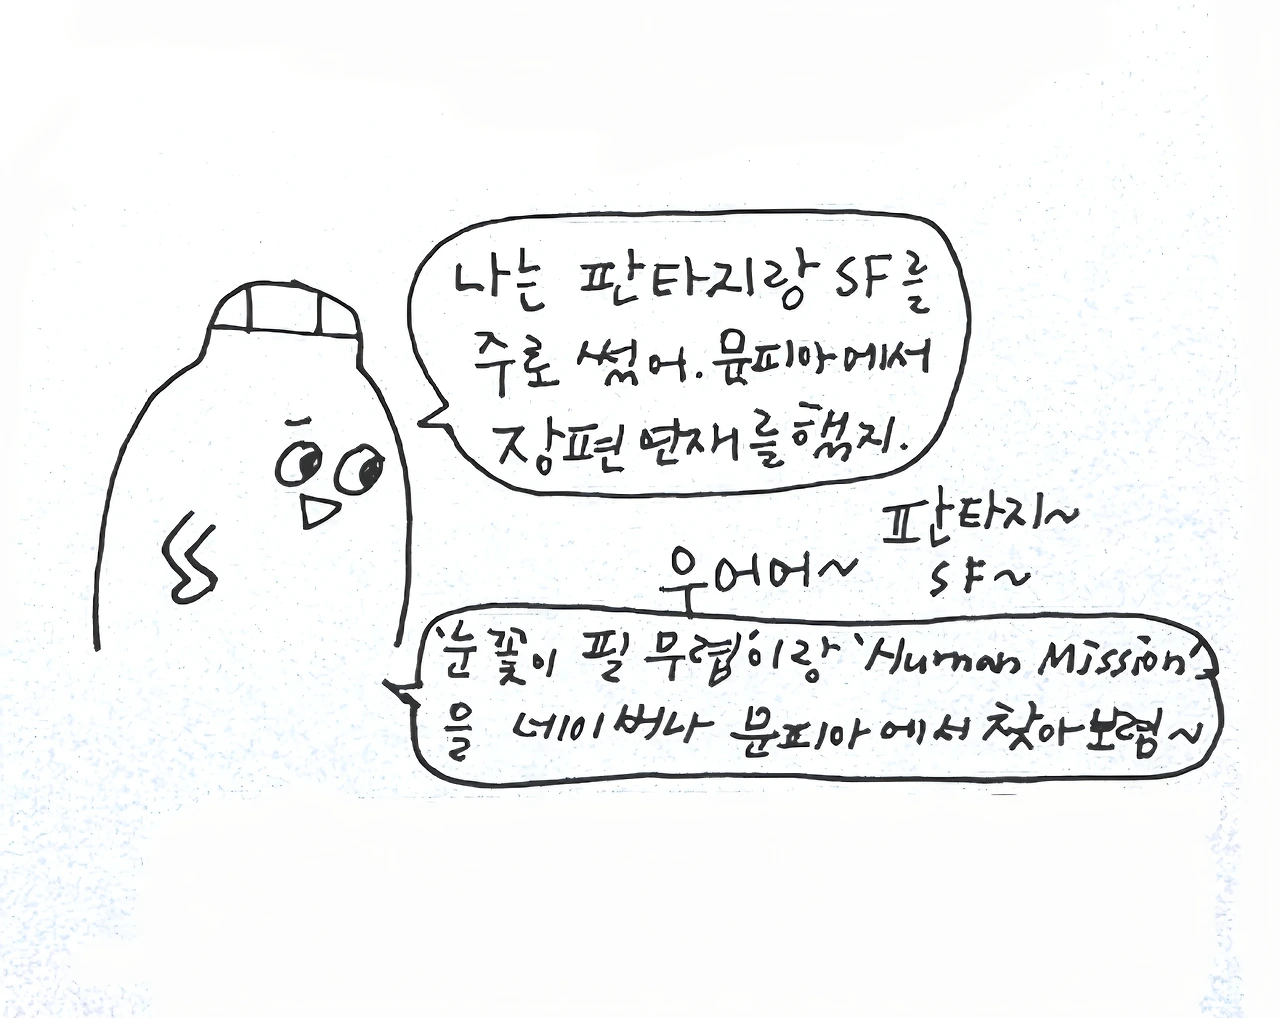 나는 판타지랑 SF를
주로 썼어. 문피아에서
장편 연재를 했지.
판타지~
우어어~ SF~
'눈꽃이 필 무렵'이랑 'Human Mission'
을 네이버나 문피아에서 찾아보렴~